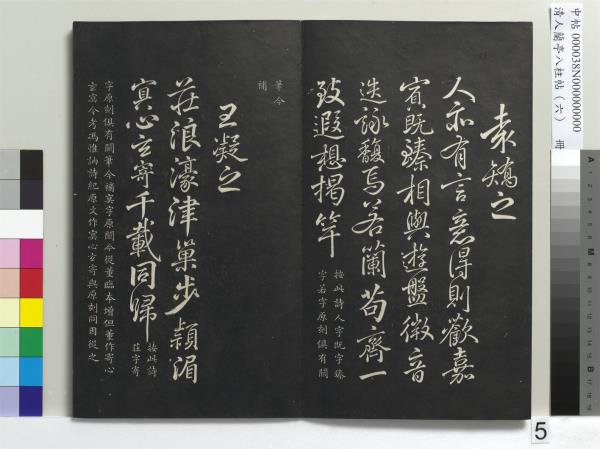 中帖 000038N000000000
清人蘭亭八柱帖（六） 冊
袁矯之
人亦有言意得則歡嘉
賓既臻相與遊盤微音
迭詠馥焉若蘭苟齊一
致遐想揭竿
按此詩人字既字臻
字若字原刻俱有闕
筆今
補
王凝之
莊浪濠津巢步潁湄
冥心玄寄千載同歸
按此詩
莊字寄
字原刻俱有闕筆今補冥字原闕今從董臨本增但董作寄心
玄冥今考馮惟訥詩紀原文作冥心玄寄與原刻同因從之
5